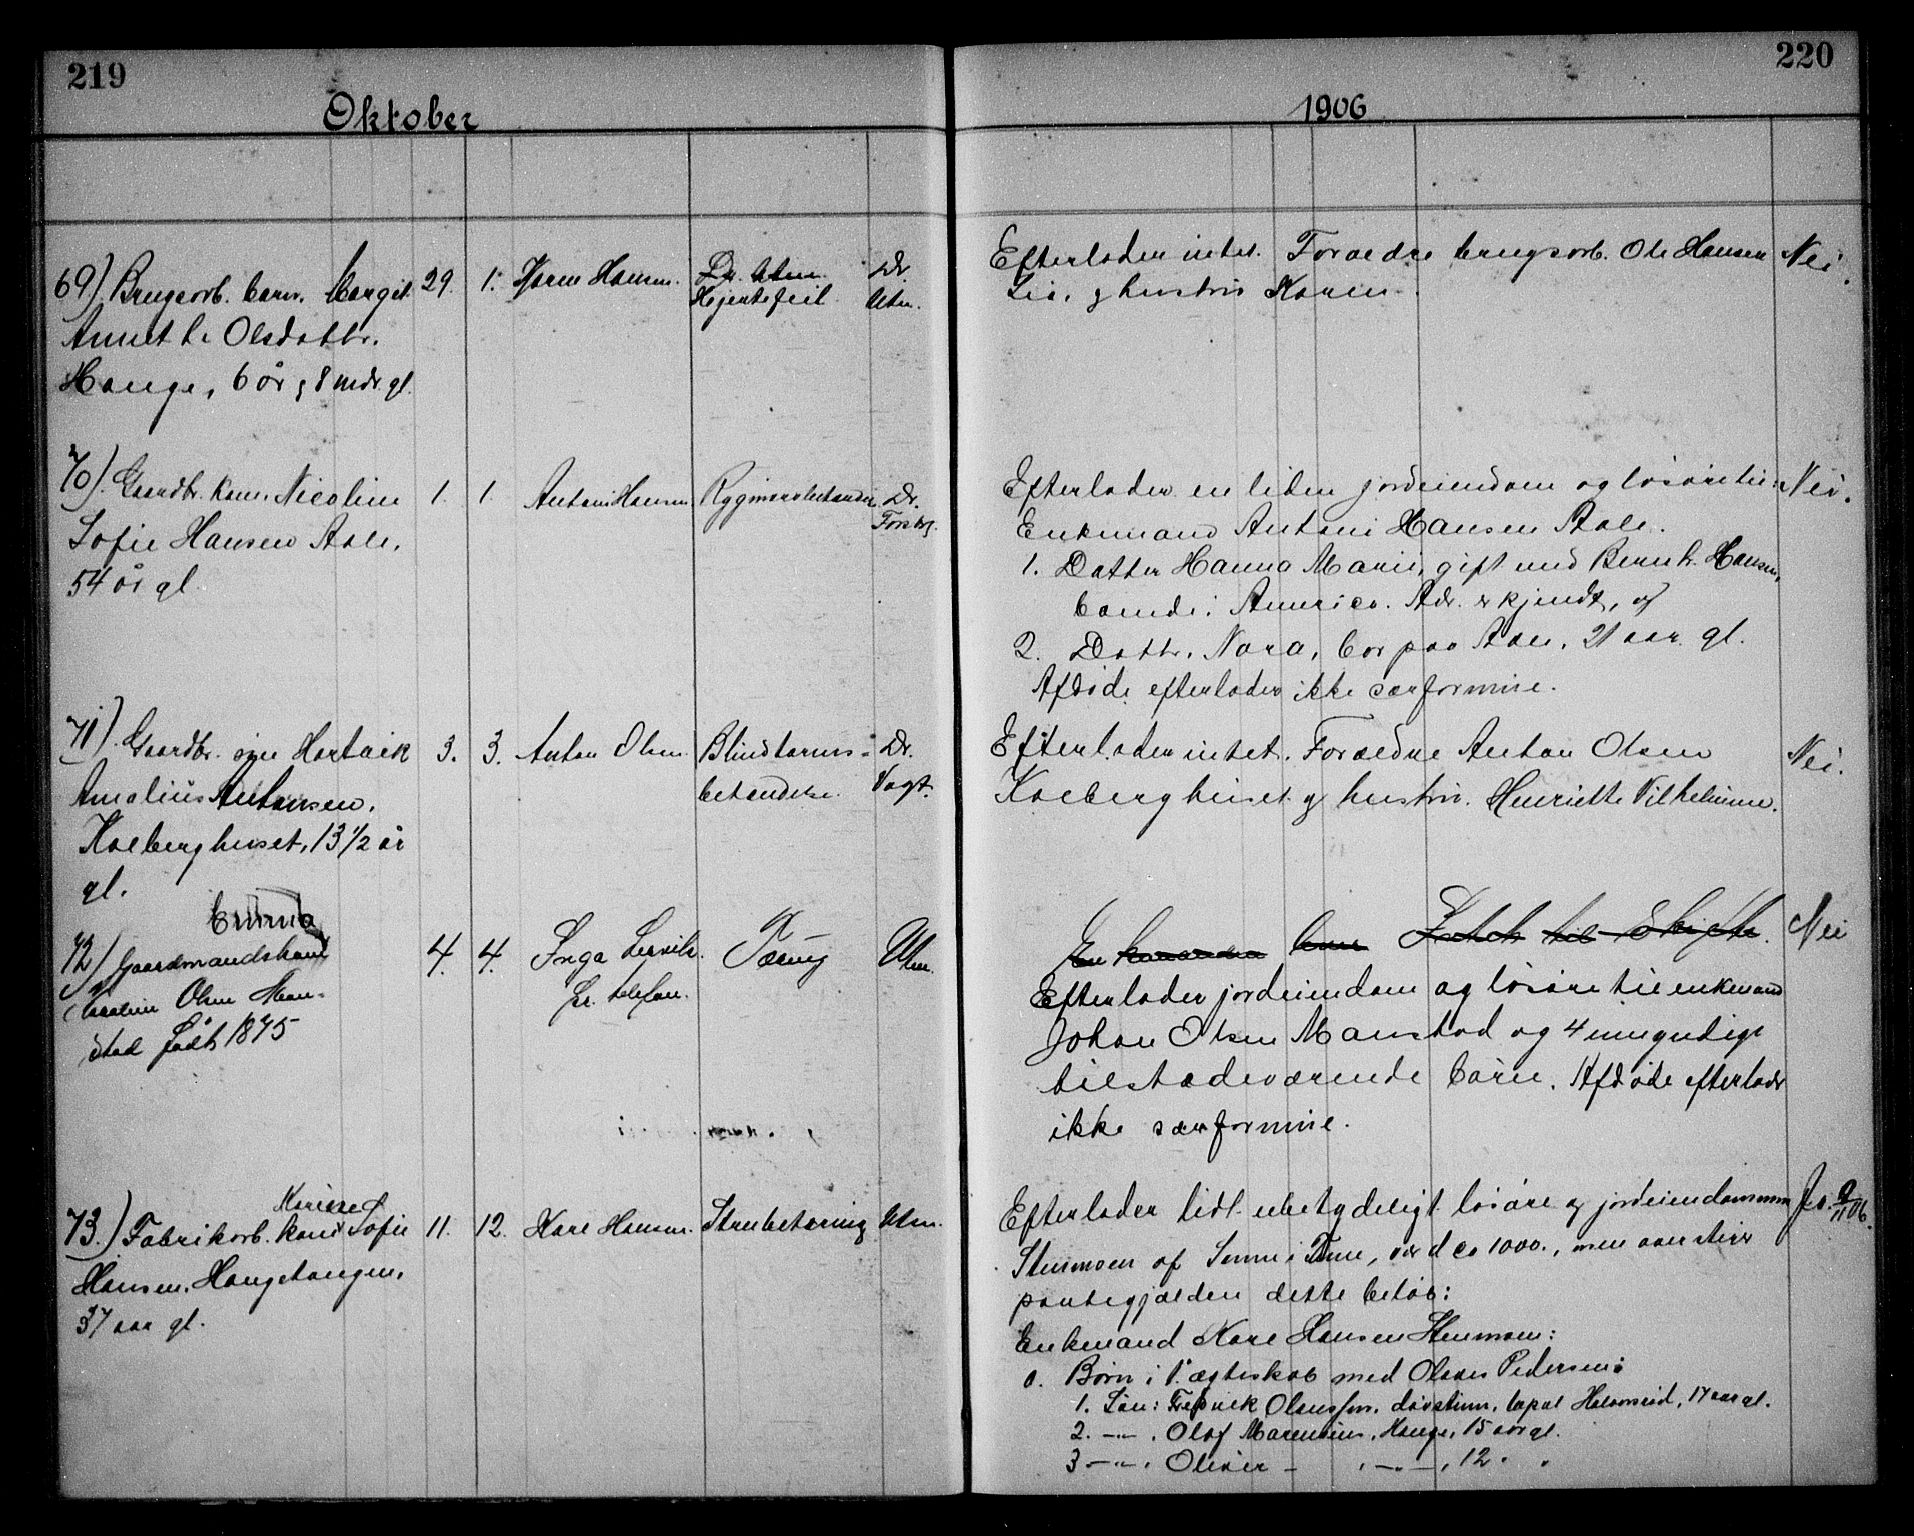 219
220
Oktober
1906
69) Brugsarb. barn. Margit
Anneth. Olsdattr.
Hauge, 6 år g 8 mdr gl.
29. 1.
Hansen.
Hjertefeil
Dr.
Utn.
Efterlader intet. Foraedre brugsarb. Ole Hansen
Lie, g hustru Karen
Nei.
70) Gaardbr. kone Nicoline
Sofie Hansen Aale,
54 år gl.
1. 1.
Antoni Hansen
Rygmarvsbetændelse
Dr.
Efterlader en liden jordeiendom og løsøre til:
Enkemand Antoni Hansen Aale.
1. Datter Hanna Marie, gift med Bernh. Hansen,
boende i America. Adr. er kjendt, og
2. Dattr. Nora, bor paa Aale, 21 aar gl.
Afdøde efterlader ikke særformue.
Nei.
71) Gaardbr. søn Hartvik
Amalius Antonsen.
Kolberghuset, 13 1/2 år
gl.
3. 3.
Anton Olsen
Blindtarms-
betændelse.
Dr.
Vogt.
Efterlader intet. Foraedre Anton Olsen
Kolberghuset g hustru. Henriette Vilhelmine.
Nei.
Emma
72) Gaardmandskone
Karoline Olsen Man-
stad født 1875
4. 4.
Inga Lervik
pr. telefon.
Tæring
Utn.
Skifte.
Efterlader jordeiendom og løsøre til enkemand
Johan Olsen Manstad og 4 umyndige
tilstedeværende børn. Afdøde efterlader
ikke særformue.
Nei
73.) Fabrikarb. kone Sofie
Hansen, Haugetangen,
37 aar gl.
11. 12.
Kare Hansen.
Strubetæring
Utn.
Efterlader lidt ubetydeligt løsøre g jordeiendommen
Stenmoen af Sonne i Tune, værd ca 1000., men overstiger
pantegjælden dette beløb:
Enkemand Kare Hansen Stenmoen:
a. Børn i 1. ægteskab med Olaves Pedersen:
1. Søn: Fredrik Olavessen, døvstum, 17 aar gl.
2. —"— , Olaf Marensius, Hauge, 15 aar gl.
3 —"— , Oliver — , —"— , 12 " "
Ja. 2/11 06.